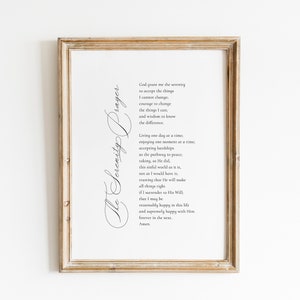 The Serenity Prayer
God grant me the serenity
to accept the things
I cannot change;
courage to change
the things I can;
and wisdom to know
the difference.
Living one day at a time;
enjoying one moment at a time;
accepting hardships
as the pathway to peace;
taking, as He did,
this sinful world as it is,
not as I would have it;
trusting that He will make
all things right
if I surrender to His Will;
that I may be
reasonably happy in this life
and supremely happy with Him
forever in the next.
Amen.